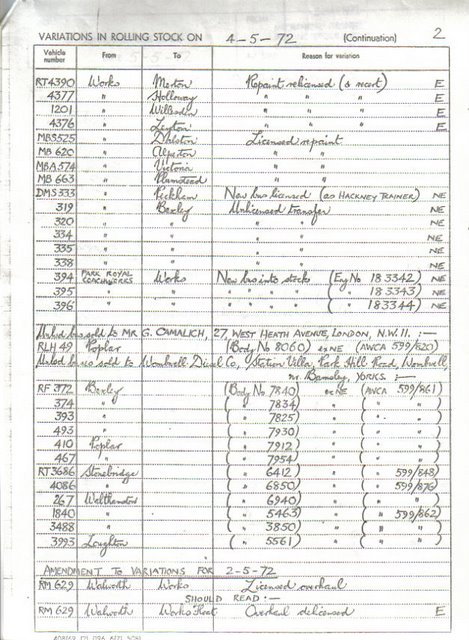 VARIATIONS IN ROLLING STOCK ON 4-5-72 (Continuation) 2
Vehicle number From To Reason for variation
RT4390 Works Merton Repaint relicensed (& recert) E
4377 " Holloway " " " E
1201 " Willesden " " " E
4376 " Leyton " " " E
MBS525 " Dalston Licensed repaint
MB 620 " Alperton " "
MBA 574 " Victoria " "
MB 663 " Plumstead " "
DMS 333 " Peckham New bus licensed (as HACKNEY TRAINER) NE
319 " Bexley Unlicensed transfer NE
320 " " " " NE
334 " " " " NE
335 " " " " NE
338 " " " " NE
394 PARK ROYAL COACHWORKS Works New bus into stock (Eng No 183342) NE
395 " " " " " " ( " " 183343) NE
396 " " " " " " ( " " 183344) NE
bus sold to MR G. CAMALICH, 27, WEST HEATH AVENUE, LONDON, N.W.11. :—
RLH 49 Poplar (Body No 8060) ex NE (AWCA 599/820)
sold to Wombwell Diesel Co, Station Villa, Park Hill Road, Wombwell,
nr. Barnsley, YORKS. :—
RF 372 Bexley (Body No 7840) ex NE (AWCA 599/861)
374 " ( " 7834) " ( " " )
393 " ( " 7825) " ( " " )
493 " ( " 7930) " ( " " )
410 Poplar ( " 7912) " ( " " )
467 " ( " 7954) " ( " " )
RT3686 Stonebridge ( " 6412) " ( " 599/848)
4086 " ( " 6850) " ( " 599/876)
267 Walthamstow ( " 6940) " ( " " )
1840 " ( " 5463) " ( " 599/862)
3488 " ( " 3850) " ( " " )
3993 Loughton ( " 5561) " ( " " )
AMENDMENT TO VARIATIONS FOR 2-5-72
RM 629 Walworth Works Licensed overhaul
SHOULD READ :—
RM 629 Walworth Works Float Overhaul delicensed E